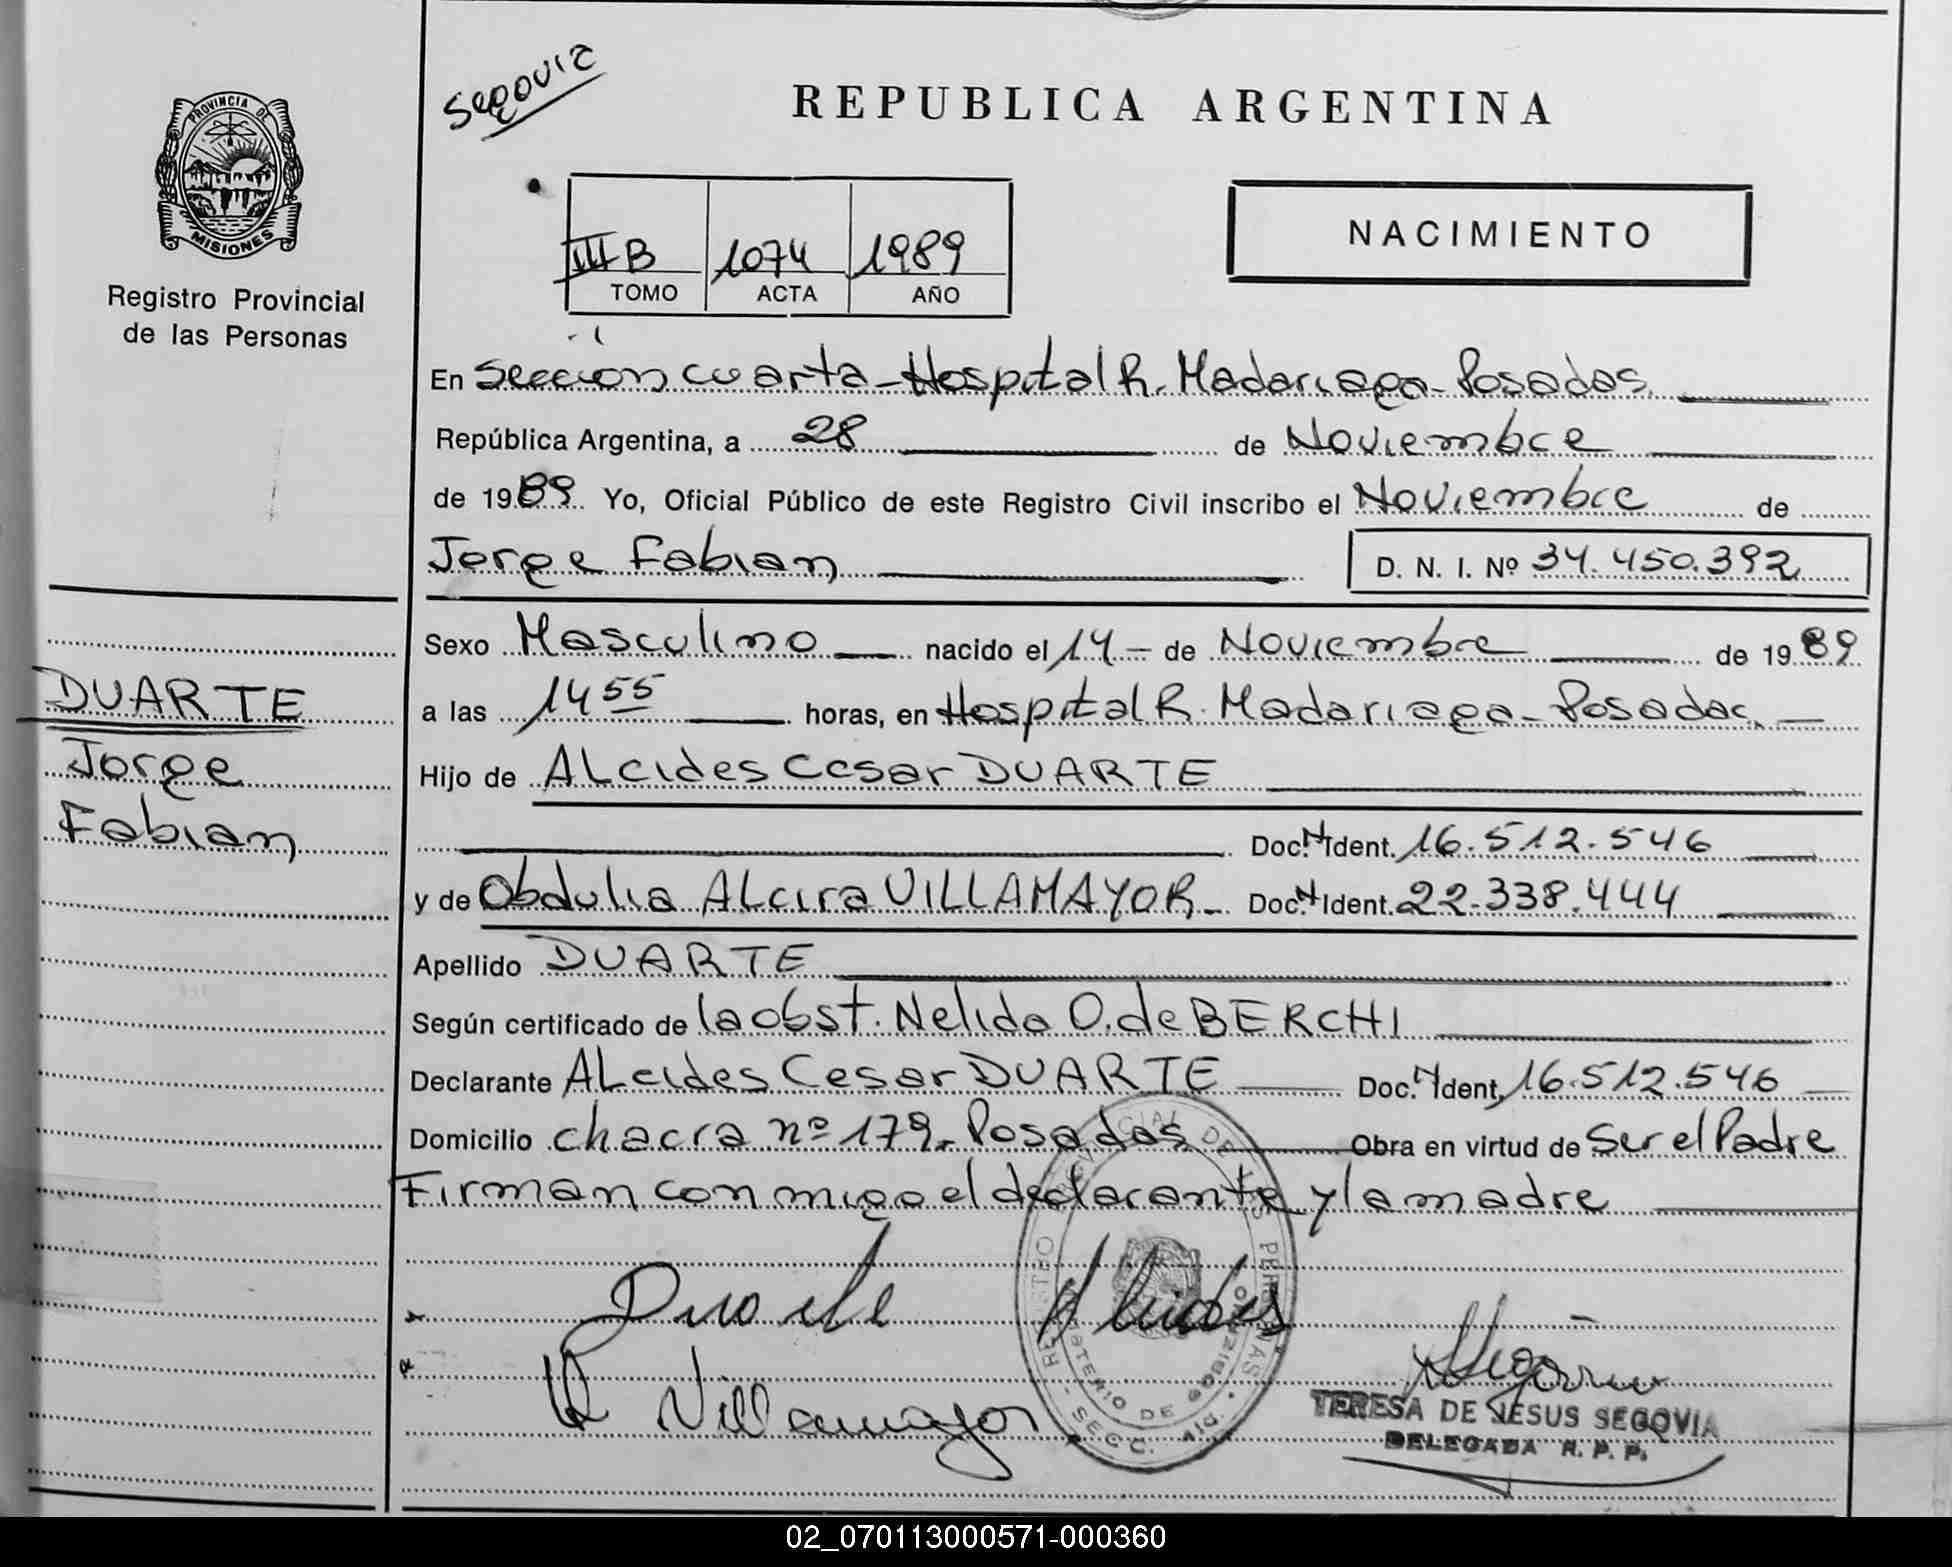 Segovia
REPUBLICA ARGENTINA
PROVINCIA DE
MISIONES
Registro Provincial
de las Personas
III B 1074 1989
TOMO ACTA AÑO
NACIMIENTO
En Sección cuarta - Hospital R. Madariaga - Posadas
República Argentina, a 28 de Noviembre
de 1989 Yo, Oficial Público de este Registro Civil inscribo el Noviembre de
Jorge Fabian D. N. I. Nº 34.450.392
Sexo Masculino nacido el 14 - de Noviembre de 1989
a las 14 55 horas, en Hospital R. Madariaga - Posadas.
Hijo de ALcides Cesar DUARTE
Doc. Ident. 16.512.546
y de Obdulia ALcira VILLAMAYOR - Doc. Ident. 22.338.444
Apellido DUARTE
Según certificado de la obst. Nelida O. de BERCHI
Declarante ALcides Cesar DUARTE Doc. Ident. 16.512.546
Domicilio chacra nº 179 - Posadas Obra en virtud de Ser el Padre
Firman conmigo el declarante y la madre
DUARTE
Jorge
Fabian
Duarte Alcides
Villamayor
Segovia
TERESA DE JESUS SEGOVIA
DELEGADA R. P. P.
02_070113000571-000360